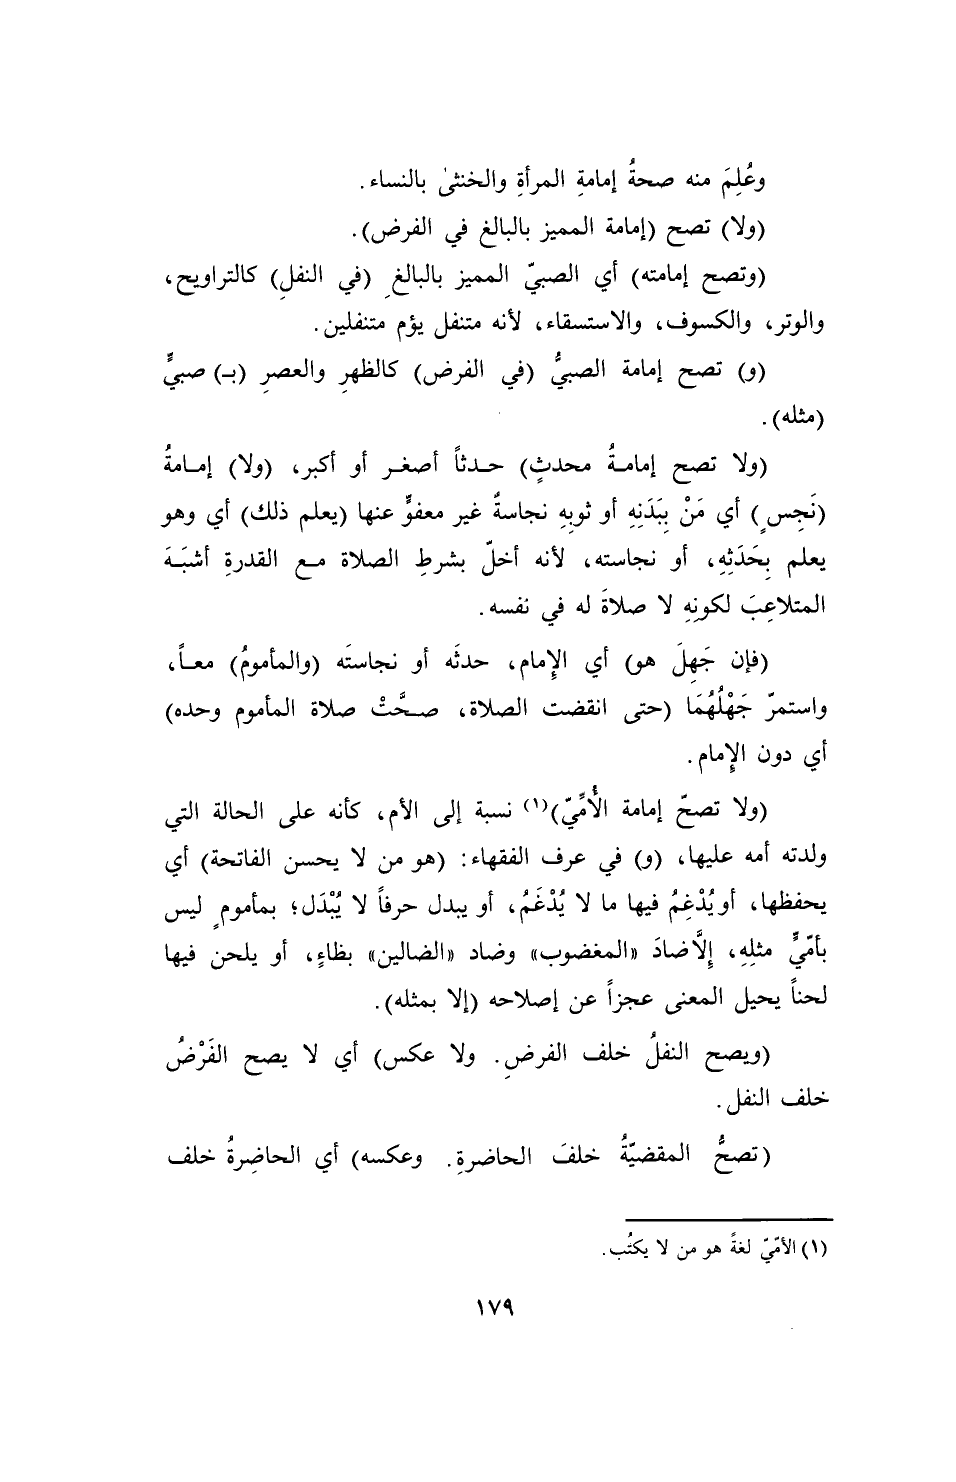 وعُلِمَ منه صحةُ إمامةِ المرأةِ والخنثىٰ بالنساء.
(ولا) تصح (إمامة المميز بالبالغ في الفرض).
(وتصح إمامته) أي الصبيّ المميز بالبالغِ (في النفلِ) كالتراويح،
والوتر، والكسوف، والاستسقاء، لأنه متنفل يؤم متنفلين.
(و) تصح إمامة الصبيُّ (في الفرض) كالظهرِ والعصرِ (بـ) صبيٍّ
(مثله).
(ولا تصح إمامـةُ محدثٍ) حـدثاً أصغـر أو أكبر، (ولا) إمـامةُ
(نَجِسٍ) أي مَنْ بِبَدَنِهِ أو ثوبِهِ نجاسةٌ غير معفوٍّ عنها (يعلم ذلك) أي وهو
يعلم بِحَدَثِهِ، أو نجاسته، لأنه أخلّ بشرطِ الصلاة مـع القدرةِ أشبَـهَ
المتلاعِبَ لكونِهِ لا صلاةَ له في نفسه.
(فإن جَهِلَ هو) أي الإمام، حدثَه أو نجاستَه (والمأمومُ) معـاً،
واستمرّ جَهْلُهُمَا (حتى انقضت الصلاة، صـحَّتْ صلاة المأموم وحده)
أي دون الإمام.
(ولا تصحّ إمامة الأُمِّيّ)(١) نسبة إلى الأم، كأنه على الحالة التي
ولدته أمه عليها، (و) في عرف الفقهاء: (هو من لا يحسن الفاتحة) أي
يحفظها، أو يُدْغِمُ فيها ما لا يُدْغَمُ، أو يبدل حرفاً لا يُبْدَل؛ بمأمومٍ ليس
بأمّيٍّ مثلِهِ، إلَّا ضادَ «المغضوب» وضاد «الضالين» بظاءٍ، أو يلحن فيها
لحناً يحيل المعنى عجزاً عن إصلاحه (إلا بمثله).
(ويصح النفلُ خلف الفرضِ. ولا عكس) أي لا يصح الفَرْضُ
خلف النفل.
(تصحُّ المقضيّةُ خلفَ الحاضرةِ. وعكسه) أي الحاضِرةُ خلف
(١) الأمّيّ لغةً هو من لا يكتُب.
١٧٩